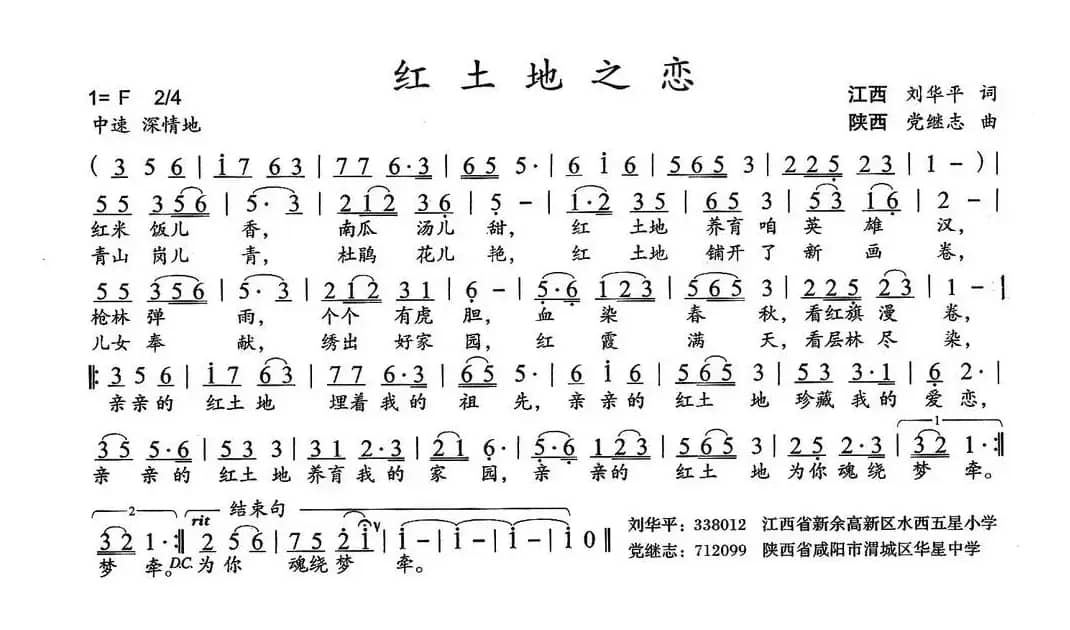 红土地之恋
1= F 2/4
江西 刘华平 词
中速 深情地
陕西 党继志 曲
( 3 5 6 | i 7 6 3 | 7 7 6·3 | 6 5 5· | 6 i 6 | 5 6 5 3 | 2 2 5 2 3 | 1 - ) |
5 5 3 5 6 | 5· 3 | 2 1 2 6 | 5 - | 1·2 3 5 | 6 5 3 | 5 3 1 6 | 2 - |
红米 饭儿 香, 南瓜 汤儿 甜, 红 土地 养育 咱 英 雄 汉,
青山 岗儿 青, 杜鹃 花儿 艳, 红 土地 铺开 了 新 画 卷,
5 5 3 5 6 | 5· 3 | 2 1 2 3 1 | 6 - | 5·6 1 2 3 | 5 6 5 3 | 2 2 5 2 3 | 1 - |
枪林 弹 雨, 个个 有虎 胆, 血 染 春 秋, 看红旗 漫 卷,
儿女 奉 献, 绣出 好家 园, 红 霞 满 天, 看层林 尽 染,
‖: 3 5 6 | i 7 6 3 | 7 7 6·3 | 6 5 5· | 6 i 6 | 5 6 5 3 | 5 3 3·1 | 6 2· |
亲亲的 红土 地 埋着 我 的 祖 先, 亲亲的 红土 地 珍藏 我 的 爱 恋,
3 5 5·6 | 5 3 3 | 3 1 2·3 | 2 1 6· | 5·6 1 2 3 | 5 6 5 3 | 2 5 2·3 | 1 3 2 1· :‖
亲 亲的 红土 地 养育 我 的 家 园, 亲 亲的 红土 地 为你 魂 绕 梦 牵。
2 rit 结束句
3 2 1· :‖ 2 5 6 | 7 5 2 i v | i - | i - | i - | i 0 ‖
梦 牵。 D.C. 为 你 魂绕 梦 牵。
刘华平：338012 江西省新余高新区水西五星小学
党继志：712099 陕西省咸阳市渭城区华星中学